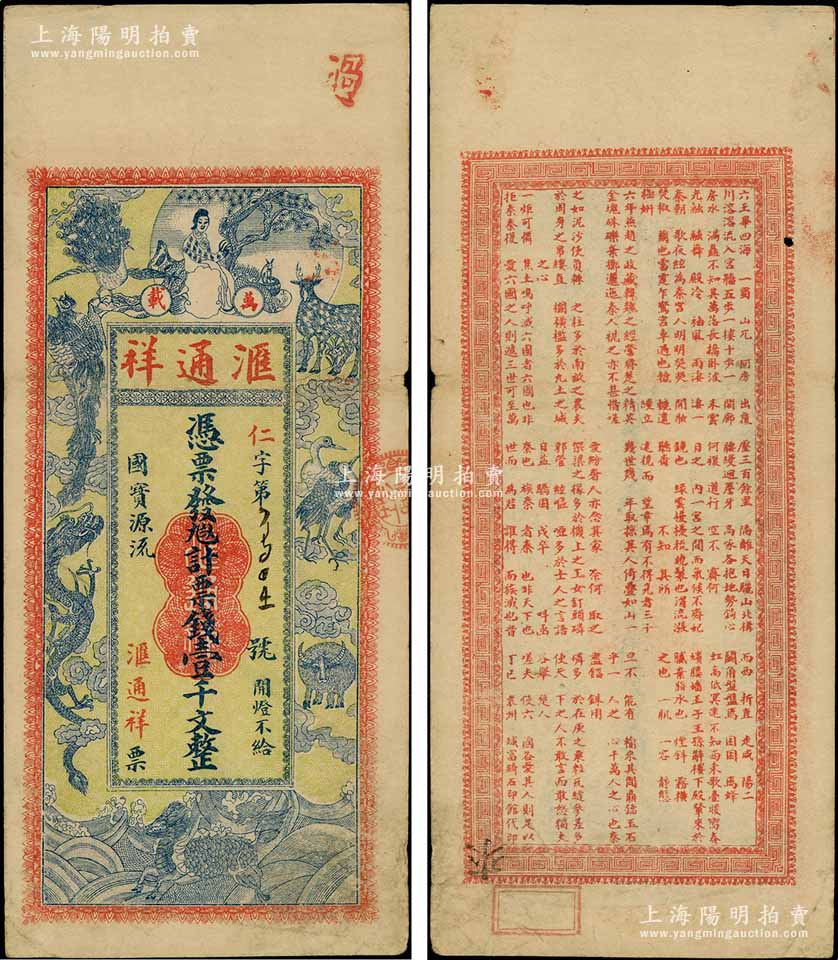 上海陽明拍賣
www.yangmingauction.com
萬載
滙通祥
仁字第
號
開燈不給
憑票發兌計票錢壹千文整
國寶源流
滙通祥票
上海陽明拍賣
www.yangmingauction.com
六王畢四海一蜀山兀阿房出覆壓三百餘里隔離天日驪山北構而西折直走咸陽二
川溶溶流入宮牆五步一樓十步一閣廊腰縵迴簷牙高啄各抱地勢鈎心鬭角盤盤焉囷囷焉蜂
房水渦矗不知其萬落長橋臥波未雲何龍複道行空不霽何虹高低冥迷不知西東歌臺暖響春
光融融舞殿冷袖風雨淒淒一日之內一宮之間而氣候不齊妃嬪媵嬙王子王孫辭樓下殿輦來於
秦朝歌夜絃為秦宮人明明熒熒開妝鏡也綠雲擾擾梳曉鬟也渭流漲膩棄脂水也煙斜霧橫
焚椒蘭也雷霆乍驚宮車過也轆轆遠聽杳不知其所之也一肌一容
縵立遠視而望幸焉有不得見者三十
六年燕趙之收藏韓魏之經營齊楚之精英幾世幾年取掠其人倚疊如山一旦不能有輸來其間鼎鐺玉石
金塊珠礫棄擲邐迤秦人視之亦不甚惜嗟乎一人之心千萬人之心也秦
愛紛奢人亦念其家奈何取之盡錙銖用
之如泥沙使負棟之柱多於南畝之農夫架梁之椽多於機上之工女釘頭磷磷多於在庾之粟粒瓦縫參差多
於周身之帛縷直欄橫檻多於九土之城郭管絃嘔啞多於市人之言語使天下之人不敢言而敢怒獨夫
之心日益驕固戍卒叫函谷舉楚人
一炬可憐焦土嗚呼滅六國者六國也非秦也族秦者秦也非天下也嗟夫使六國各愛其人則足以
拒秦秦復愛六國之人則遞三世可至萬世而為君誰得而族滅也昔
丁巳袁州城富琦石印館代印
上海陽明拍賣
www.yangmingauction.com